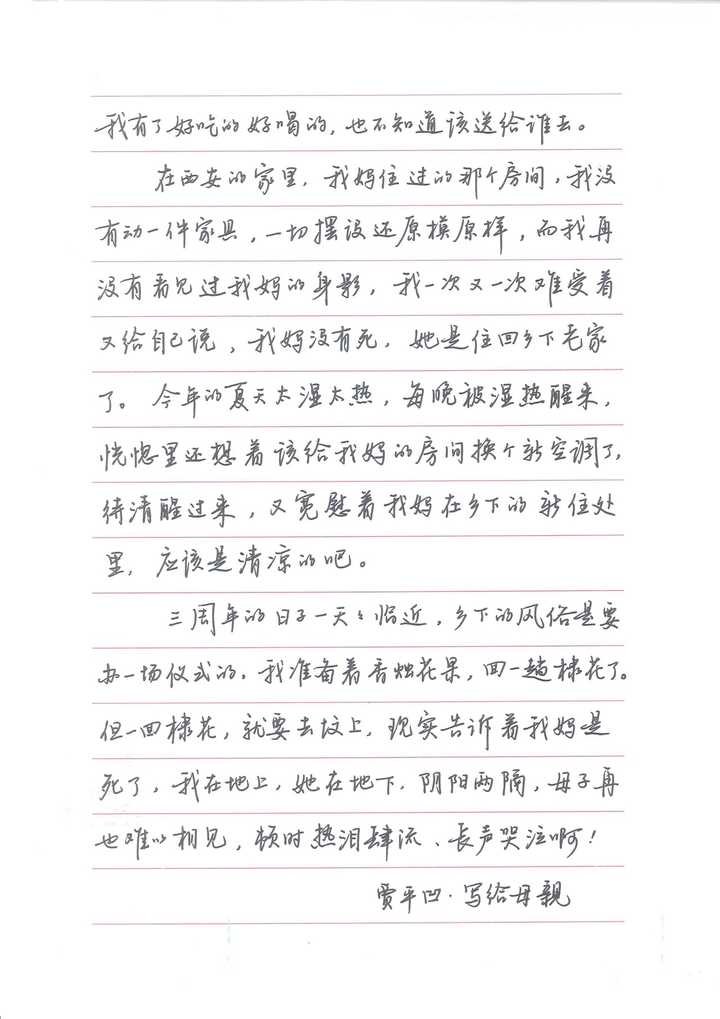 我有了好吃的好喝的，也不知道该送给谁去。
在西安的家里，我妈住过的那个房间，我没
有动一件家具，一切摆设还原模原样，而我再
没有看见过我妈的身影，我一次又一次难受着
又给自己说，我妈没有死，她是住回乡下老家
了。今年的夏天太湿太热，每晚被湿热醒来，
恍惚里还想着该给我妈的房间换个新空调了，
待清醒过来，又宽慰着我妈在乡下的新住处
里，应该是清凉的吧。
三周年的日子一天天临近，乡下的风俗是要
办一场仪式的，我准备着香烛花果，回一趟棣花了。
但一回棣花，就要去坟上，现实告诉着我妈是
死了，我在地上，她在地下，阴阳两隔，母子再
也难以相见，顿时热泪肆流、长声哭泣啊！
贾平凹·写给母亲